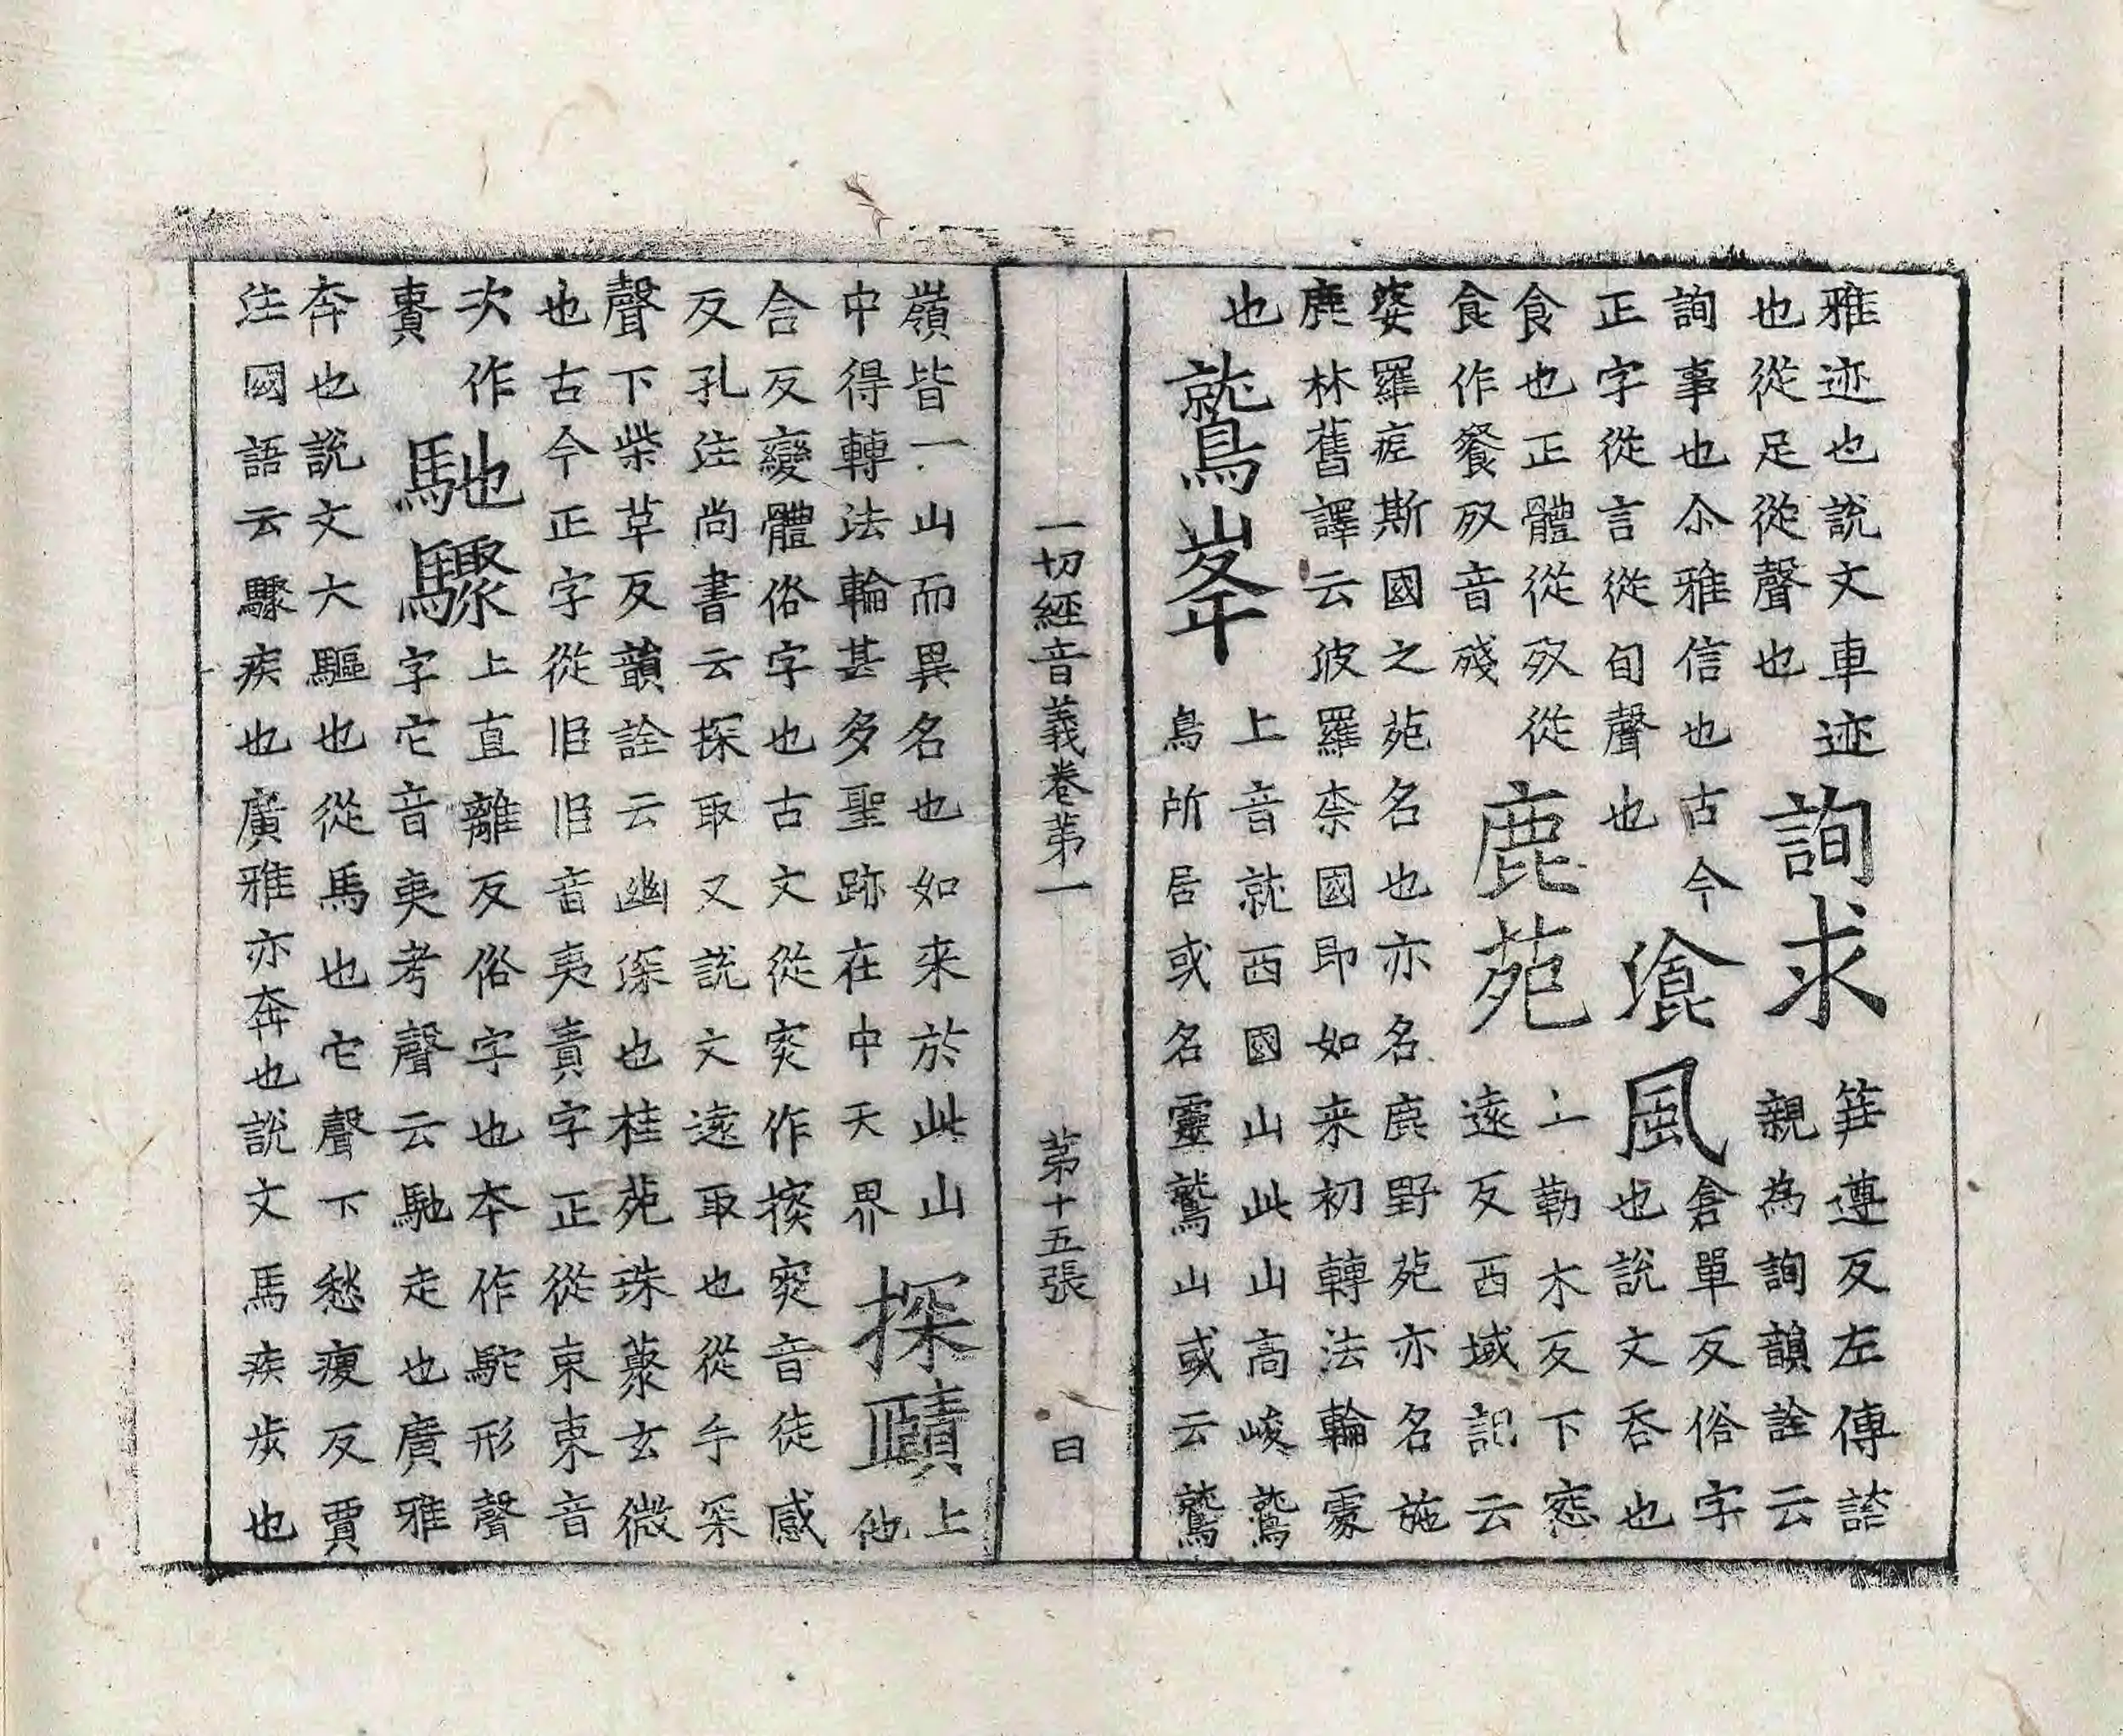 雅迹也說文車迹
也從足從聲也
詢求
筓遵反左傳諮
親為詢韻詮云
詢事也尒雅信也古今
正字從言從旬聲也
飡風
倉單反俗字
也說文吞也
食也正體從歺從
食作餐歺音殘
鹿苑
上勒木反下窓
遠反西域記云
婆羅痆斯國之苑名也亦名鹿野苑亦名施
鹿林舊譯云波羅柰國即如来初轉法輪處
也
鷲峯
上音就西國山此山高峻鷲
鳥所居或名靈鷲山或云鷲
一切經音義卷苐一 苐十五張 曰
嶺皆一山而異名也如来於此山
中得轉法輪甚多聖跡在中天界
探賾
上
他
合反變體俗字也古文從穾作㨱穾音徒感
反孔注尚書云探取又說文遠取也從手罙
聲下柴革反韻詮云幽深也桂苑珠藂玄微
也古今正字從𦣞𦣞音夷責字正從朿朿音
次作
賷
馳驟
上直離反俗字也本作駞形聲
字它音夷考聲云馳走也廣雅
奔也說文大驅也從馬也它聲下愁瘦反賈
注國語云驟疾也廣雅亦奔也說文馬疾步也